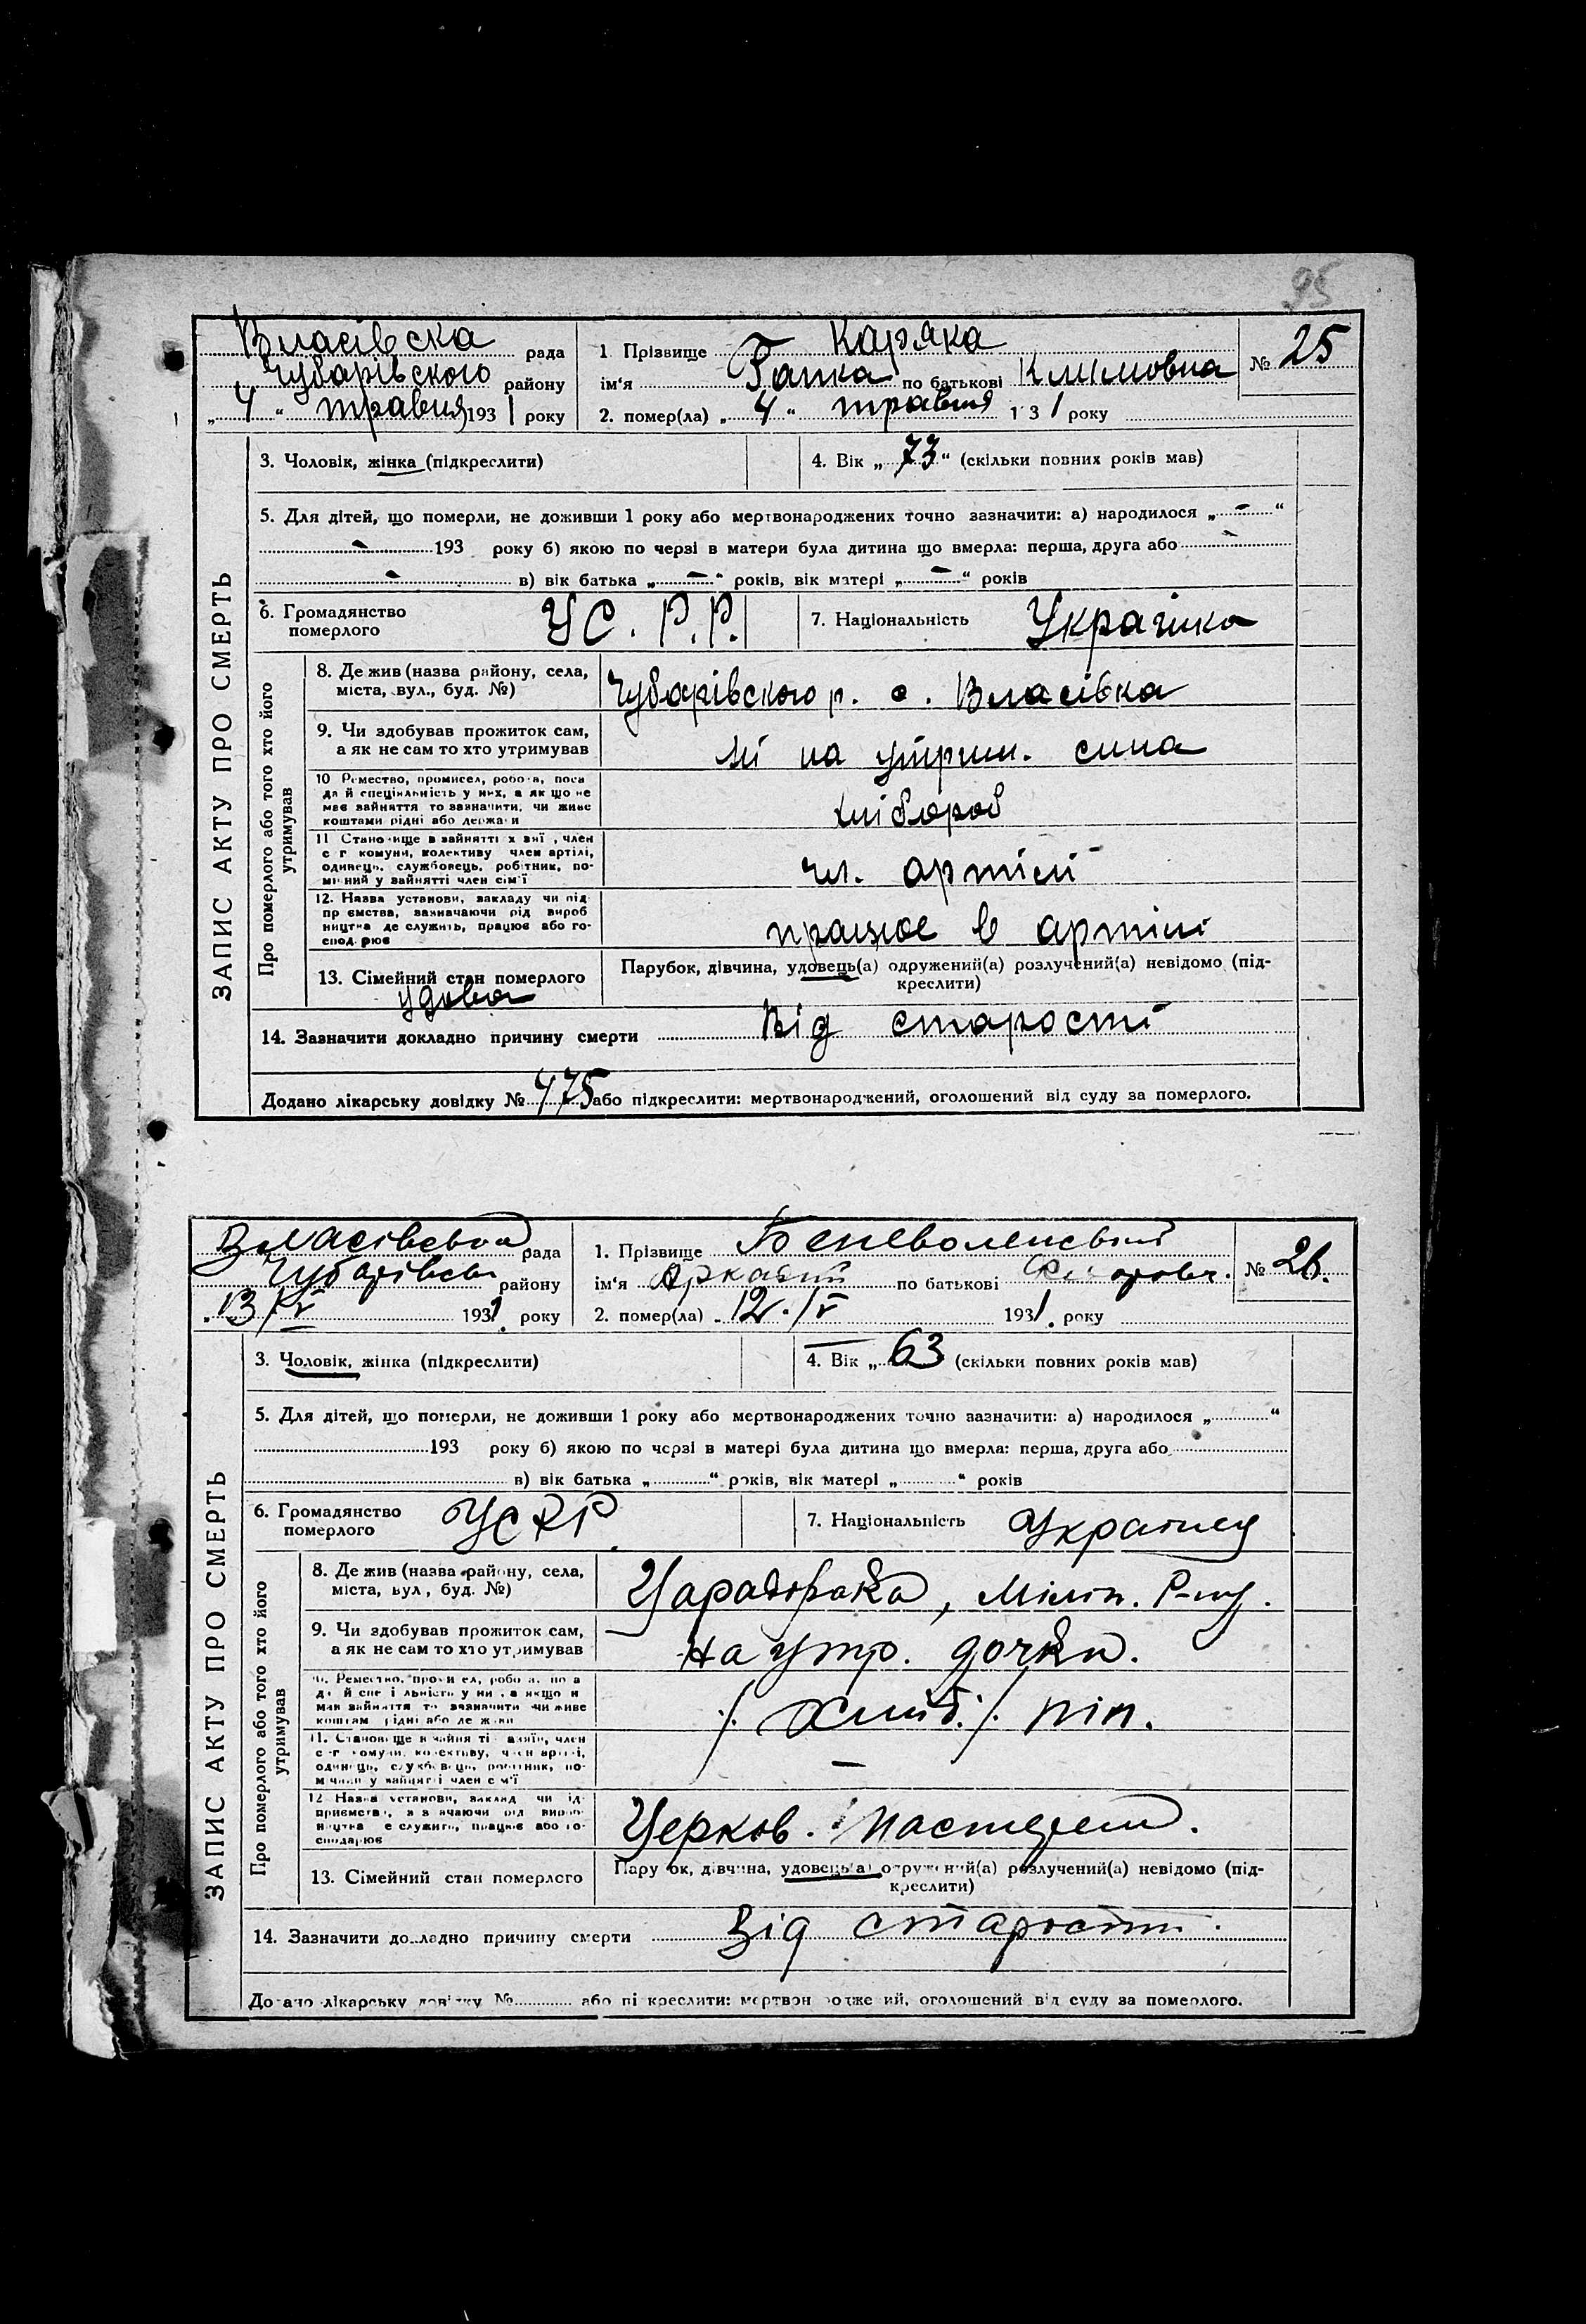 95
Власівска рада
Чубарівського району
„ 4 “ травня 1931 року
1 Прізвище Каряка
ім‘я Ганка по батькові Климовна
№ 25
2. помер(ла) „ 4 “ травня 1 3 1 року
ЗАПИС АКТУ ПРО СМЕРТЬ
3. Чоловік, жінка (підкреслити)
4. Вік „ 73 “ (скільки повних років мав)
5. Для дітей, що померли, не доживши 1 року або мертвонароджених точно зазначити: а) народилося „ - “
- 193 року б) якою по черзі в матери була дитина що вмерла: перша, друга або -
- в) вік батька „ - “ років, вік матері „ - “ років
6. Громадянство померлого УС.Р.Р.
7. Національність Українка
Про померлого або того хто його утримував
8. Де жив (назва району, села,
міста, вул., буд. №)
Чубарівського р. с. Власівка
9. Чи здобував прожиток сам,
а як не сам то хто утримував
на утрим. сина
10 Ремество, промисел, робота, поса
да й спеціяльність у них, а як що не
має зайняття то зазначити, чи живе
коштами рідні або держави
хлібороб
11 Становище в зайнятті х зяї , член
с г комуни, колективу член артілі,
одинець, службовець, робітник, по-
мічний у зайнятті член сім‘ї
чл. артілі
12. Назва установи, закладу чи під
пр ємства, зазначаючи рід вироб
ництва де служить, працює або го-
спод рює
працює в артілі
13. Сімейний стан померлого
удова
Парубок, дівчина, удовець(а) одружений(а) розлучений(а) невідомо (під-
креслити)
14. Зазначити докладно причину смерти Від старості
Додано лікарську довідку № 475 або підкреслити: мертвонароджений, оголошений від суду за померлого.
Власівської рада
Чубарівськ району
13/IV 1931. року
1. Прізвище Беневоленський
ім‘я Аркадій по батькові
№ 26.
2. помер(ла) „ 12./IV 1931. року
ЗАПИС АКТУ ПРО СМЕРТЬ
3. Чоловік, жінка (підкреслити)
4. Вік „ 63 (скільки повних років мав)
5. Для дітей, що померли, не доживши 1 року або мертвонароджених точно зазначити: а) народилося „ “
193 року б) якою по черзі в матері була дитина що вмерла: перша, друга або
в) вік батька „ “ років, вік матері „ “ років
6. Громадянство померлого УСРР.
7. Національність Українец
Про померлого або того хто його утримував
8. Де жив (назва району, села,
міста, вул, буд. №)
9. Чи здобував прожиток сам,
а як не сам то хто утримував
На утр. дочки.
10. Ремество, промисел, робота, поса
да й спеціяльність у них, а якщо н
має зайняття то зазначити чи живе
коштам рідні або держави
/. Хліб./. піп.
11. Становище в зайнятті хазяїн, член
с-г комуни, колективу, член артілі,
одинець, службовець, робітник, по-
мічний у зайнятті член сім‘ї
—
12 Назва установи, заклад чи під
приємства, зазначаючи рід вироб
ництва де служить, працює або го-
сподарює
Церков.
13. Сімейний стан померлого
Парубок, дівчина, удовець(а) одружений(а) розлучений(а) невідомо (під-
креслити)
14. Зазначити докладно причину смерти Від старости.
Додано лікарську довідку № або підкреслити: мертвонароджений, оголошений від суду за померлого.